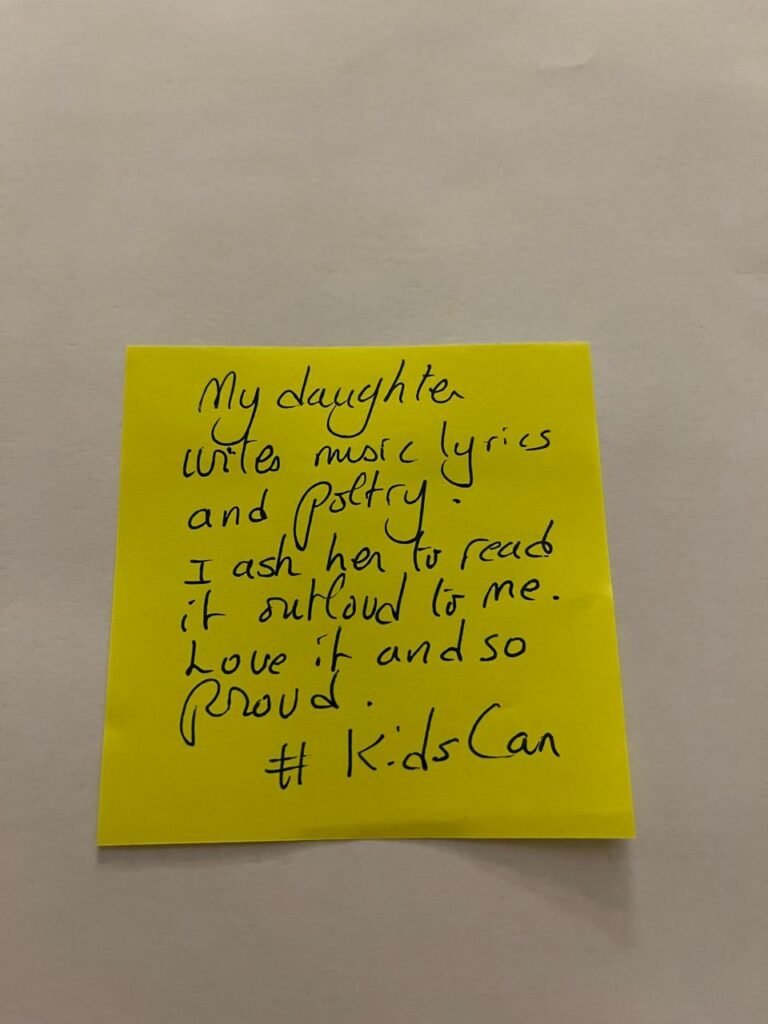 My daughter
writes music lyrics
and poetry.
I ask her to read
it outloud to me.
Love it and so
proud.
# KidsCan